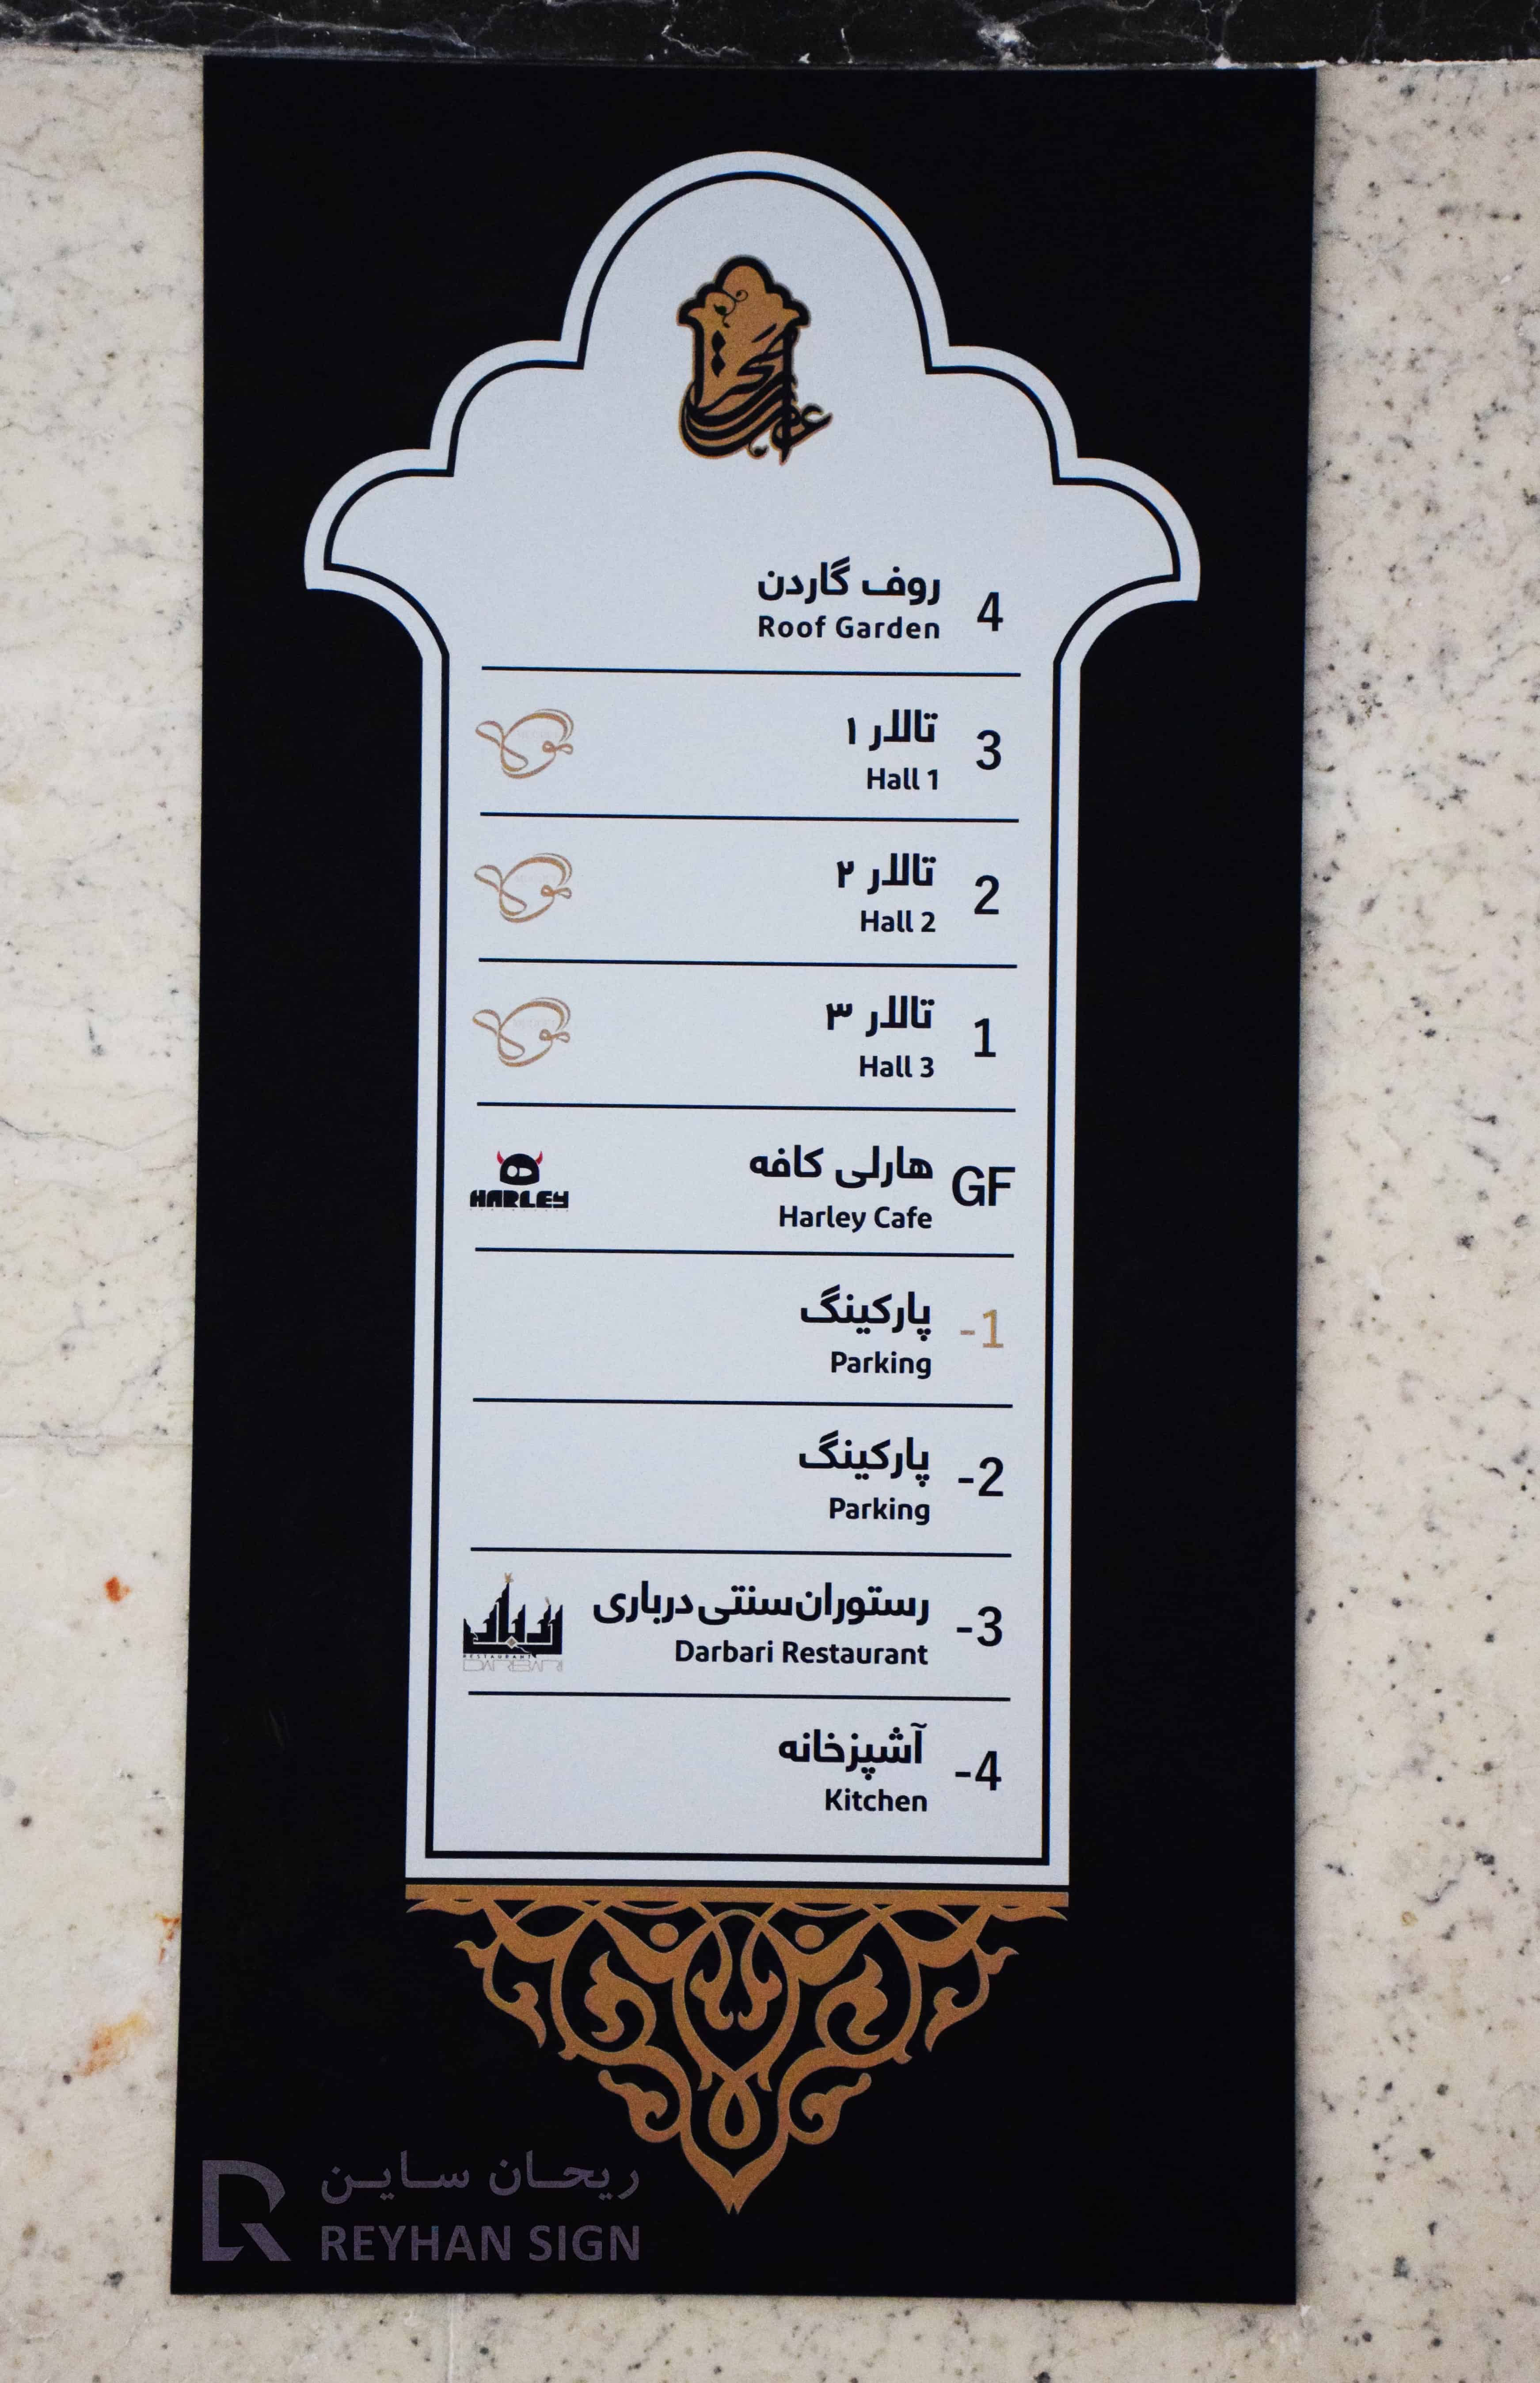 روف گاردن
4
Roof Garden
تالار ۱
3
Hall 1
تالار ۲
2
Hall 2
تالار ۳
1
Hall 3
هارلی کافه
GF
Harley Cafe
HARLEY
پارکینگ
-1
Parking
پارکینگ
-2
Parking
رستوران سنتی درباری
-3
Darbari Restaurant
RESTAURANT
DARBARI
آشپزخانه
-4
Kitchen
ریحان ساین
REYHAN SIGN